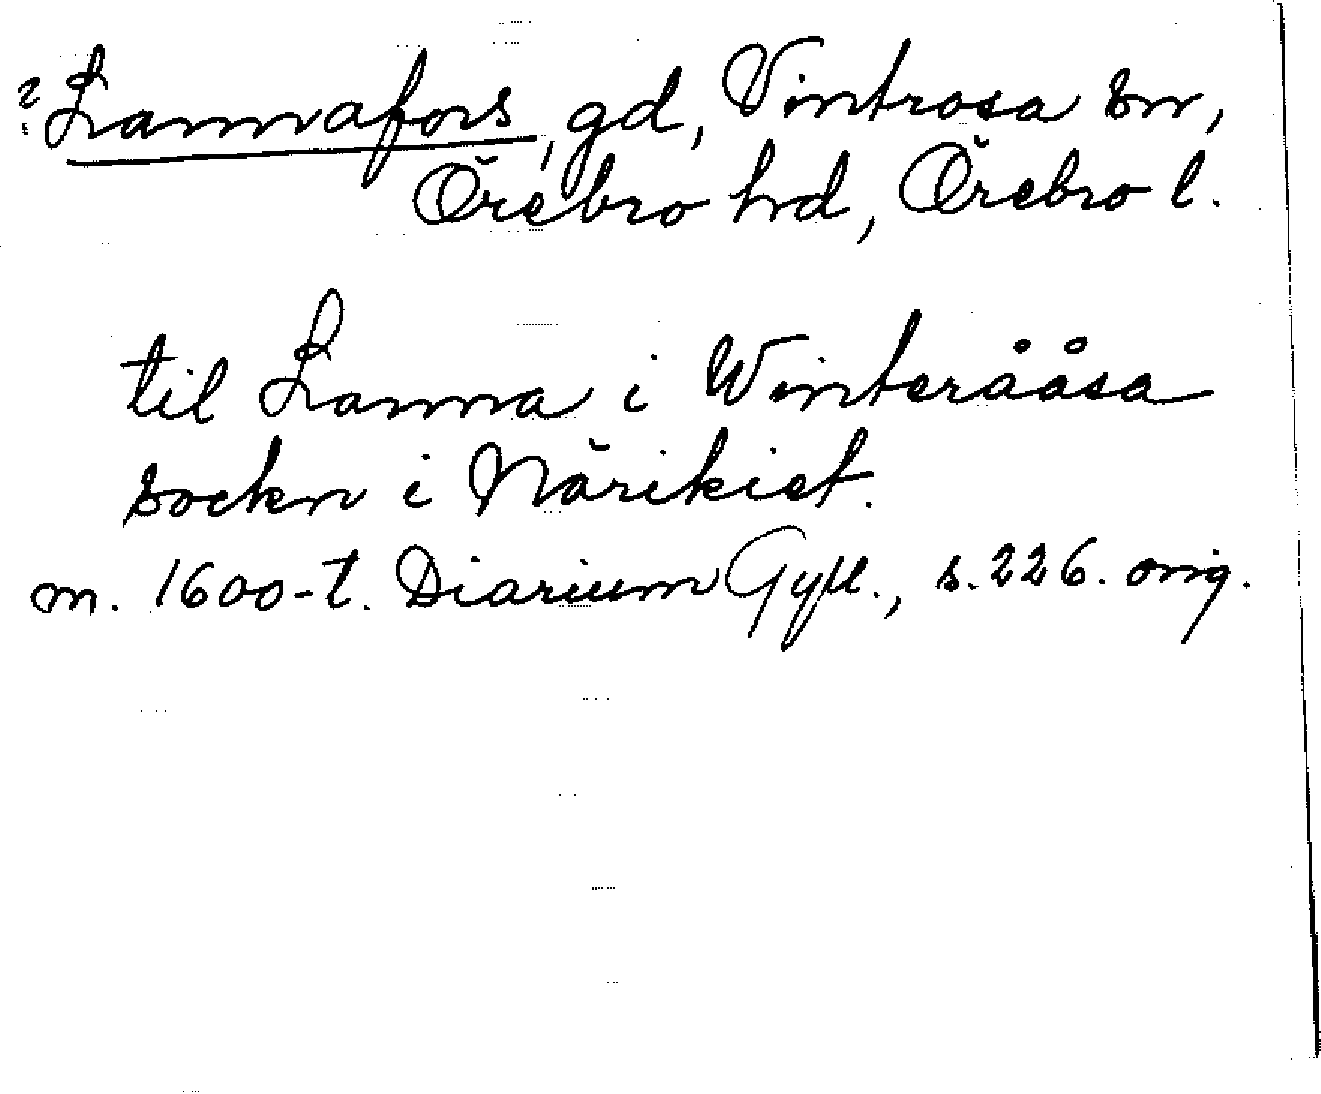 ? Lannafors, gd, Vintrosa sn,
Örebro hd, Örebro l.
til Lanna i Winterååsa
sockn i Närikiet.
m. 1600-t. Diarium Gyll., s. 226. orig.